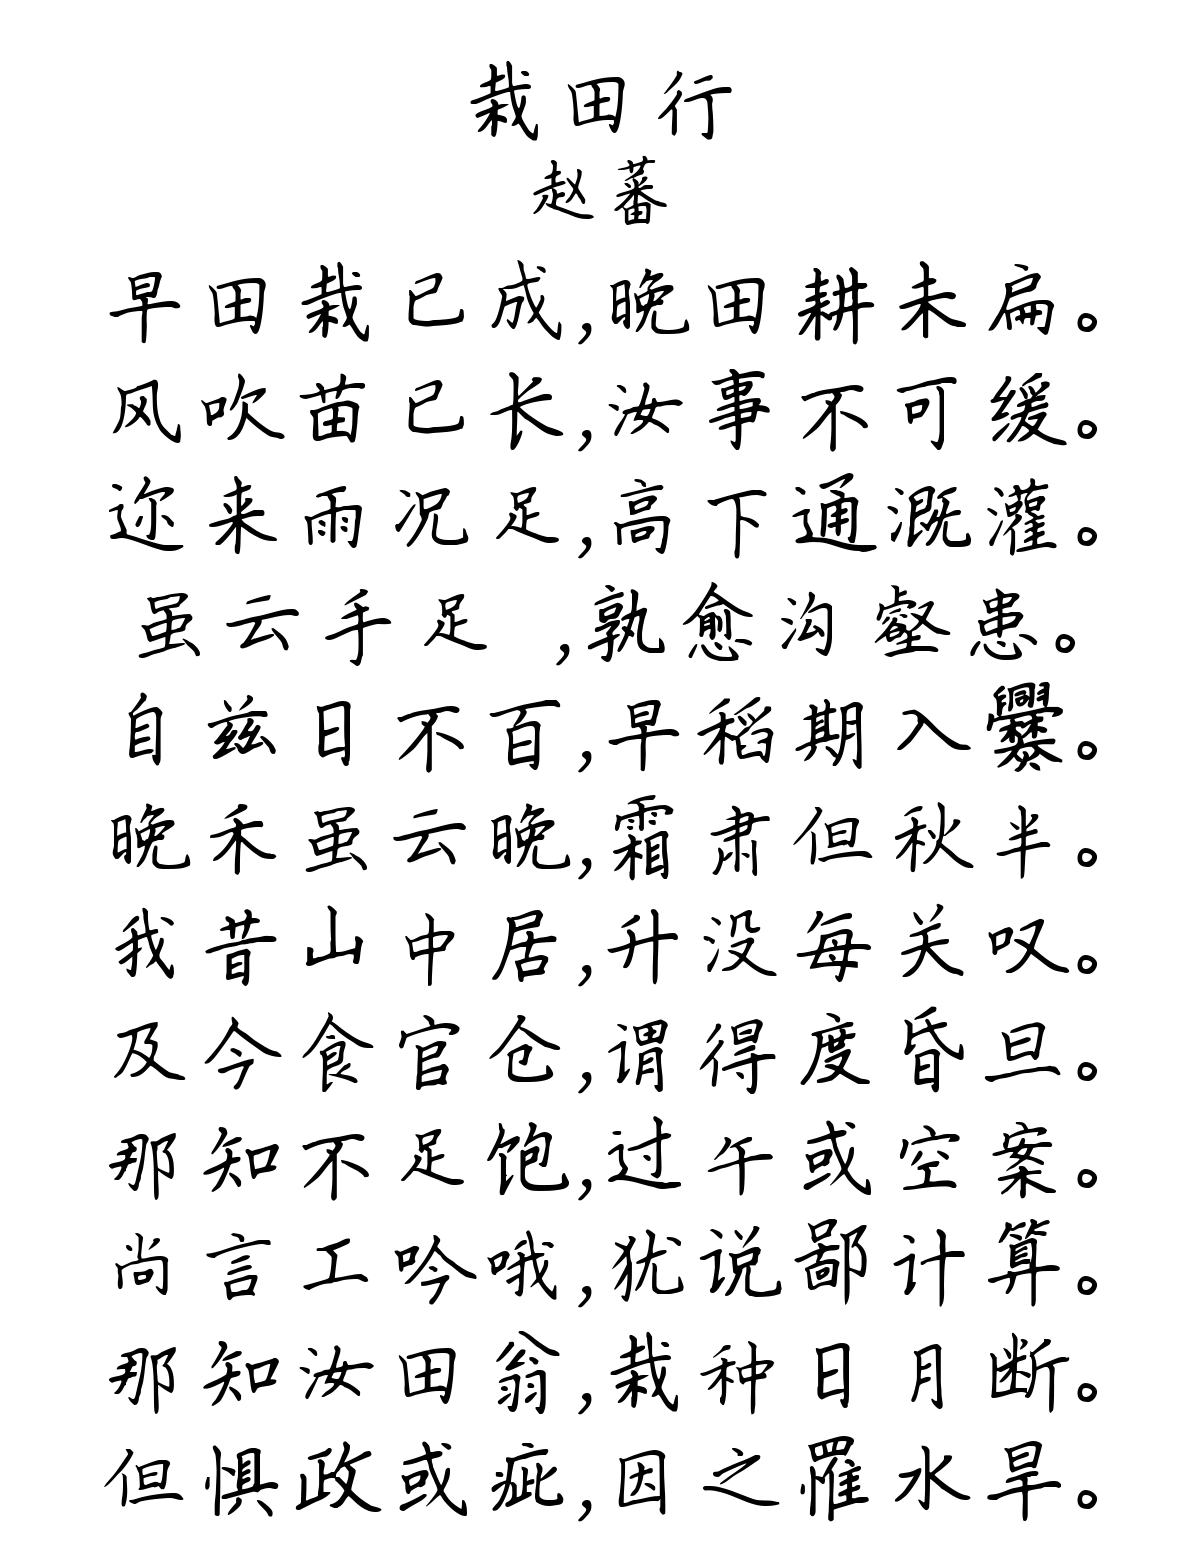 栽田行
赵蕃
早田栽已成,晚田耕未扁。
风吹苗已长,汝事不可缓。
迩来雨况足,高下通溉灌。
虽云手足 ,孰愈沟壑患。
自兹日不百,早稻期入爨。
晚禾虽云晚,霜肃但秋半。
我昔山中居,升没每关叹。
及今食官仓,谓得度昏旦。
那知不足饱,过午或空案。
尚言工吟哦,犹说鄙计算。
那知汝田翁,栽种日月断。
但惧政或疵,因之罹水旱。